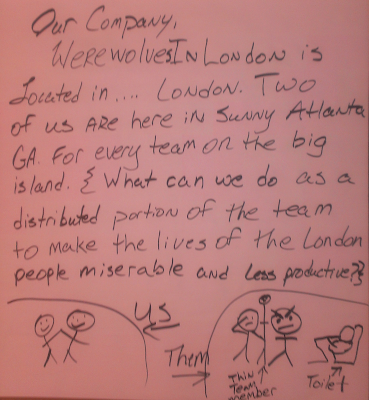 Our Company,
WerewolvesInLondon is
Located in.... London. Two
of us are here in Sunny Atlanta
GA. For every team on the big
island. { What can we do as a
distributed portion of the team
to make the lives of the London
people miserable and less productive?}
US
Them
Thin
Team
member
Toilet